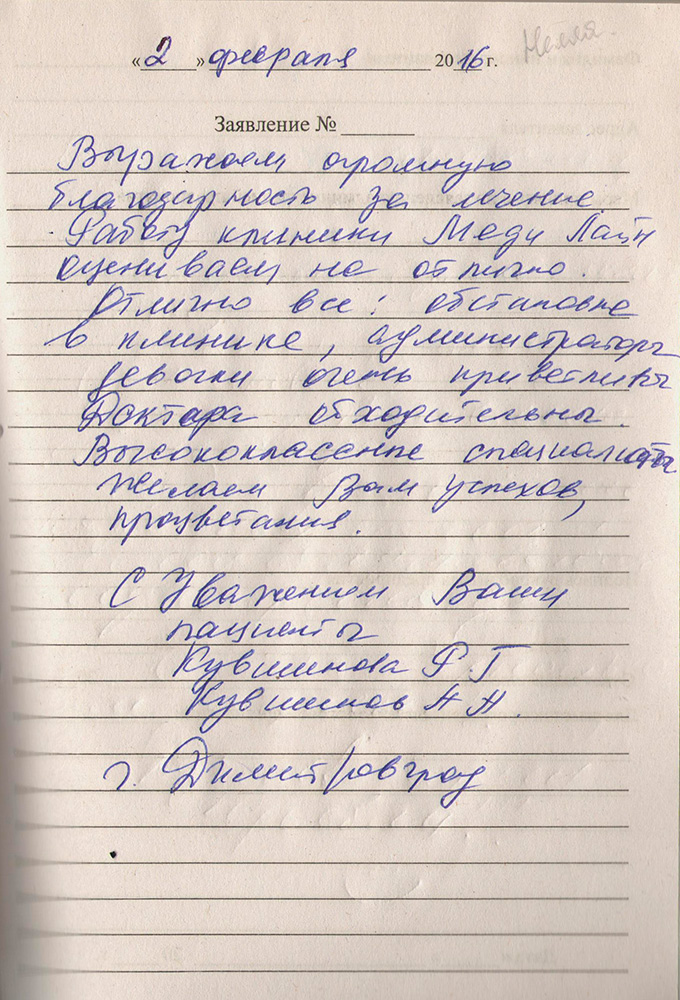 Нелля.
«2» февраля 2016 г.
Заявление №
Выражаем огромную
благодарность за лечение.
Работу клиники Меди Лайн
оцениваем на отлично.
Отлично все: обстановка
в клинике, администраторы
девочки очень приветливы
Доктора обходительны.
Высококлассные специалисты
Желаем Вам успехов,
процветания.
С Уважением Ваши
пациенты
Кувшинова Р.Г
Кувшинов А А.
г. Димитровград